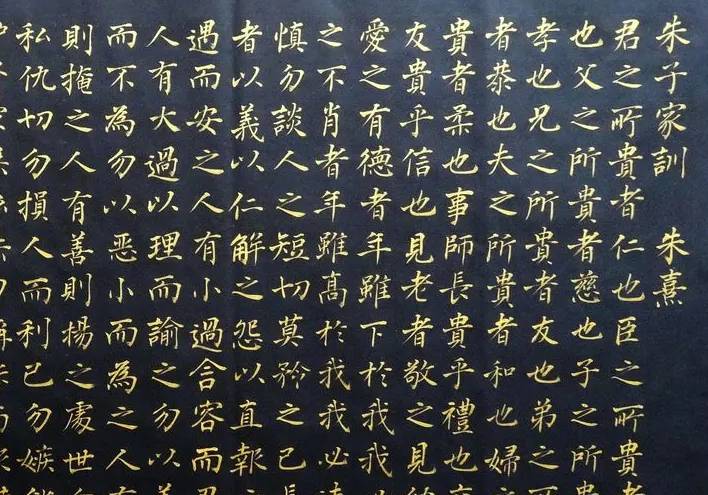 朱子家訓 朱熹
君之所貴者仁也臣之所貴
也父之所貴者慈也子之所
孝也兄之所貴者友也弟之
者恭也夫之所貴者和也婦之
貴者柔也事師長貴乎禮也
友貴乎信也見老者敬之見
愛之有德者年雖下於我我
之不肖者年雖高於我我必
慎勿談人之短切莫矜之己
者以義以仁解之怨以直報
遇而安之人有小過含容而
人有大過以理而諭之勿以
而不為勿以恶小而為之人
則掩之人有善則揚之處世
私仇切勿損人而利己勿嫉